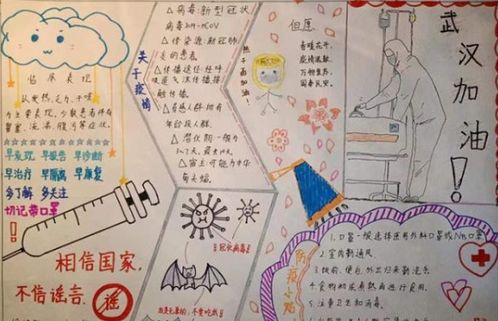 临床表现
以发热、乏力、干咳
为主要表现,少数患者伴有
鼻塞、流涕、腹泻等症状。
早发现 早报告 早诊断
早治疗 早隔离 早康复
多了解 多关注
切记带口罩
!
相信国家,
不信谣言。
谣
关于疫情
△病毒:新型冠状
病毒
△传染源:新冠肺
炎的患者
△传播途径:经呼
触传播
△易感人群:所有
年龄段人群
△潜伏期:一般为
△宿主:可能为中华
菊头蝠
冠状病毒
我是无辜的,不要吃我
但愿
春暖花开,
疫情消散,
万物复苏,
国泰民安。
热干面加油!
武汉加油!
防疫小贴
1.口罩一般选择医用外科口罩或N95口罩
2.室内勤通风
3.饭前、便后、外出归来勤洗手
4.食物彻底煮熟再进行食用
5.注重卫生和消毒